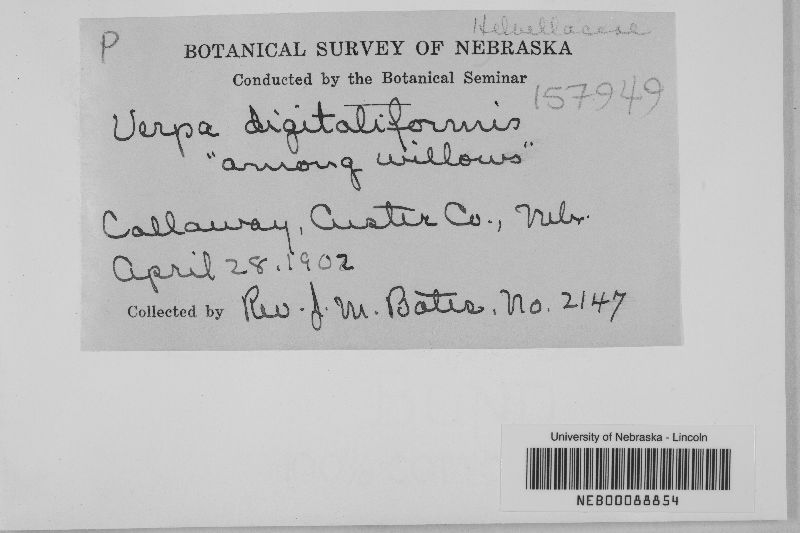 Helvellaceae
P
BOTANICAL SURVEY OF NEBRASKA
Conducted by the Botanical Seminar
157949
Verpa digitaliformis
"among willows"
Callaway, Custer Co., Nebr.
April 28, 1902
Collected by Rev. J. M. Bates. No. 2147
University of Nebraska - Lincoln
NEB00088854